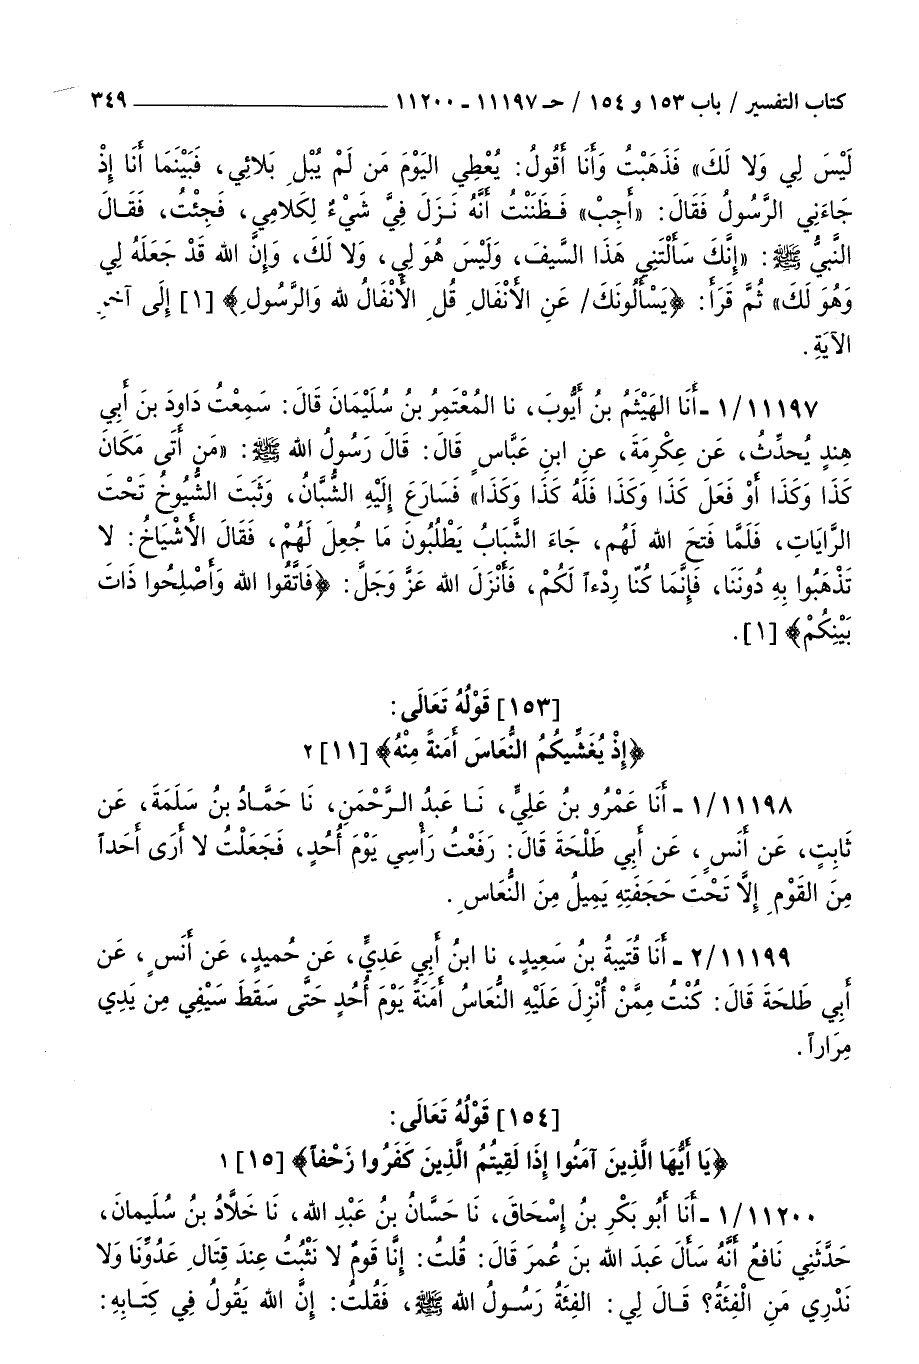 كتاب التفسير / باب ١٥٣ و ١٥٤ / حـ ١١١٩٧ - ١١٢٠٠ ٣٤٩
لَيْسَ لِي وَلا لَكَ» فَذَهَبْتُ وَأَنَا أَقُولُ: يُعْطِي اليَوْمَ مَن لَمْ يُبْلِ بَلائِي، فَبَيْنَمَا أَنَا إِذْ
جَاءَنِي الرَّسُولُ فَقَالَ: «أَجِبْ» فَظَنَنْتُ أَنَّهُ نَزَلَ فِيَّ شَيْءٌ لِكَلامِي، فَجِئْتُ، فَقَالَ
النَّبيُّ ﷺ: «إِنَّكَ سَأَلْتَنِي هَذَا السَّيفَ، وَلَيْسَ هُوَ لِي، وَلا لَكَ، وَإِنَّ الله قَدْ جَعَلَهُ لِي
وَهُوَ لَكَ» ثُمَّ قَرَأَ: ﴿يَسْأَلُونَكَ/ عَنِ الأَنْفَالِ قُلِ الأَنْفَالُ لله وَالرَّسُولِ﴾ [١] إِلَى آخرِ
الآيَةِ.
١١١٩٧/ ١ - أَنَا الهَيْثَمُ بنُ أَيُّوبَ، نا المُعْتَمِرُ بنُ سُلَيْمَانَ قَالَ: سَمِعْتُ دَاودَ بنَ أَبِي
هِندٍ يُحدِّثُ، عَن عِكْرِمَةَ، عنِ ابنِ عَبَّاسٍ قَالَ: قَالَ رَسُولُ الله ﷺ: «مَن أَتَى مَكَانَ
كَذَا وَكَذَا أَوْ فَعَلَ كَذَا وَكَذَا فَلَهُ كَذَا وَكَذَا» فَسَارَعَ إِلَيْهِ الشُّبَّانُ، وَثَبَتَ الشُّيُوخُ تَحْتَ
الرَّايَاتِ، فَلَمَّا فَتحَ الله لَهُم، جَاءَ الشَّبَابُ يَطْلُبُونَ مَا جُعِلَ لَهُمْ، فَقَالَ الأَشْيَاخُ: لا
تَذْهَبُوا بِهِ دُونَنَا، فَإِنَّمَا كُنّا رِدْءاً لَكُمْ، فَأَنْزَلَ الله عَزَّ وَجَلَّ: ﴿فَاتَّقُوا الله وَأَصْلِحُوا ذَاتَ
بَيْنِكُمْ﴾ [١].
[١٥٣] قَوْلُهُ تَعَالَى:
﴿إِذْ يُغَشِّيكُمُ النُّعَاسَ أَمَنةً مِنْهُ﴾ [١١] ٢
١١١٩٨/ ١ - أَنَا عَمْرُو بنُ عَلِيٍّ، نَا عَبدُ الرَّحْمَنِ، نَا حَمَّادُ بنُ سَلَمَةَ، عَن
ثَابِتٍ، عَن أَنَسٍ، عَن أَبِي طَلْحَةَ قَالَ: رَفَعْتُ رَأْسِي يَوْمَ أُحُدٍ، فَجَعَلْتُ لا أَرَى أَحَداً
مِنَ القَوْمِ إِلاَّ تَحْتَ حَجَفَتِهِ يَمِيلُ مِنَ النُّعَاسِ.
١١١٩٩/ ٢ - أَنَا قُتَيبةُ بنُ سَعِيدٍ، نا ابنُ أَبِي عَدِيٍّ، عَن حُميدٍ، عَن أَنَسٍ، عَن
أَبِي طَلحَةَ قَالَ: كُنْتُ مِمَّنْ أُنْزِلَ عَلَيْهِ النُّعَاسُ أَمَنَةً يَوْمَ أُحُدٍ حَتَّى سَقَطَ سَيْفِي مِن يَدِي
مِرَاراً.
[١٥٤] قَوْلُهُ تَعَالَى:
﴿يَا أَيُّهَا الَّذِينَ آمَنُوا إِذَا لَقِيتُمُ الَّذِينَ كَفَرُوا زَحْفاً﴾ [١٥] ١
١١٢٠٠/ ١ - أَنَا أَبُو بَكْرِ بنُ إِسْحَاقَ، نَا حَسَّانُ بنُ عَبْدِ الله، نَا خَلاَّدُ بنُ سُلَيمانَ،
حَدَّثَنِي نَافعُ أَنَّهُ سَأَلَ عَبدَ الله بنَ عُمرَ قَالَ: قُلتُ: إِنَّا قَومٌ لا نَثْبُتُ عِندَ قِتَالِ عَدُوِّنَا وَلا
نَدْرِي مَنِ الْفِئَةُ؟ قَالَ لِي: الفِئَةُ رَسُولُ الله ﷺ، فَقُلتُ: إِنَّ الله يَقُولُ فِي كِتَابِهِ: